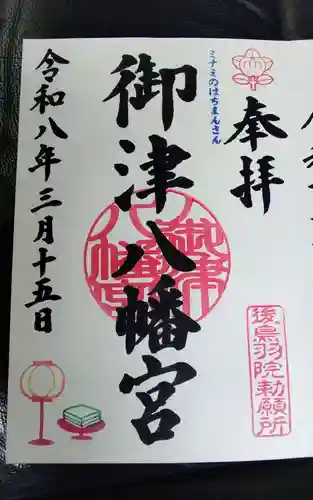 奉拝
ミナミのはちまんさん
御津八幡宮
後鳥羽院勅願所
御津
八幡宮
令和八年三月十五日